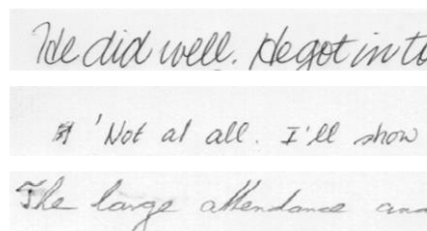 He did well. He got into
'Not at all. I'll show
The large attendance and